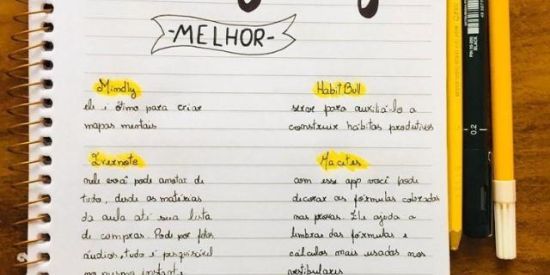 -MELHOR-
Mindly
ele é ótimo para criar
mapas mentais
Habit Bull
serve para auxiliá-lo a
construir hábitos produtivos
Evernote
nele você pode anotar de
tudo, desde as matérias
da aula até sua lista
de compras. Pode por fotos
áudios, tudo é pesquisável
no mesmo instante
Macetes
com esse app você pode
decorar as fórmulas cobradas
nas provas. Ele ajuda a
lembrar das fórmulas e
cálculos mais usados nos
vestibulares
0.2
BLACK